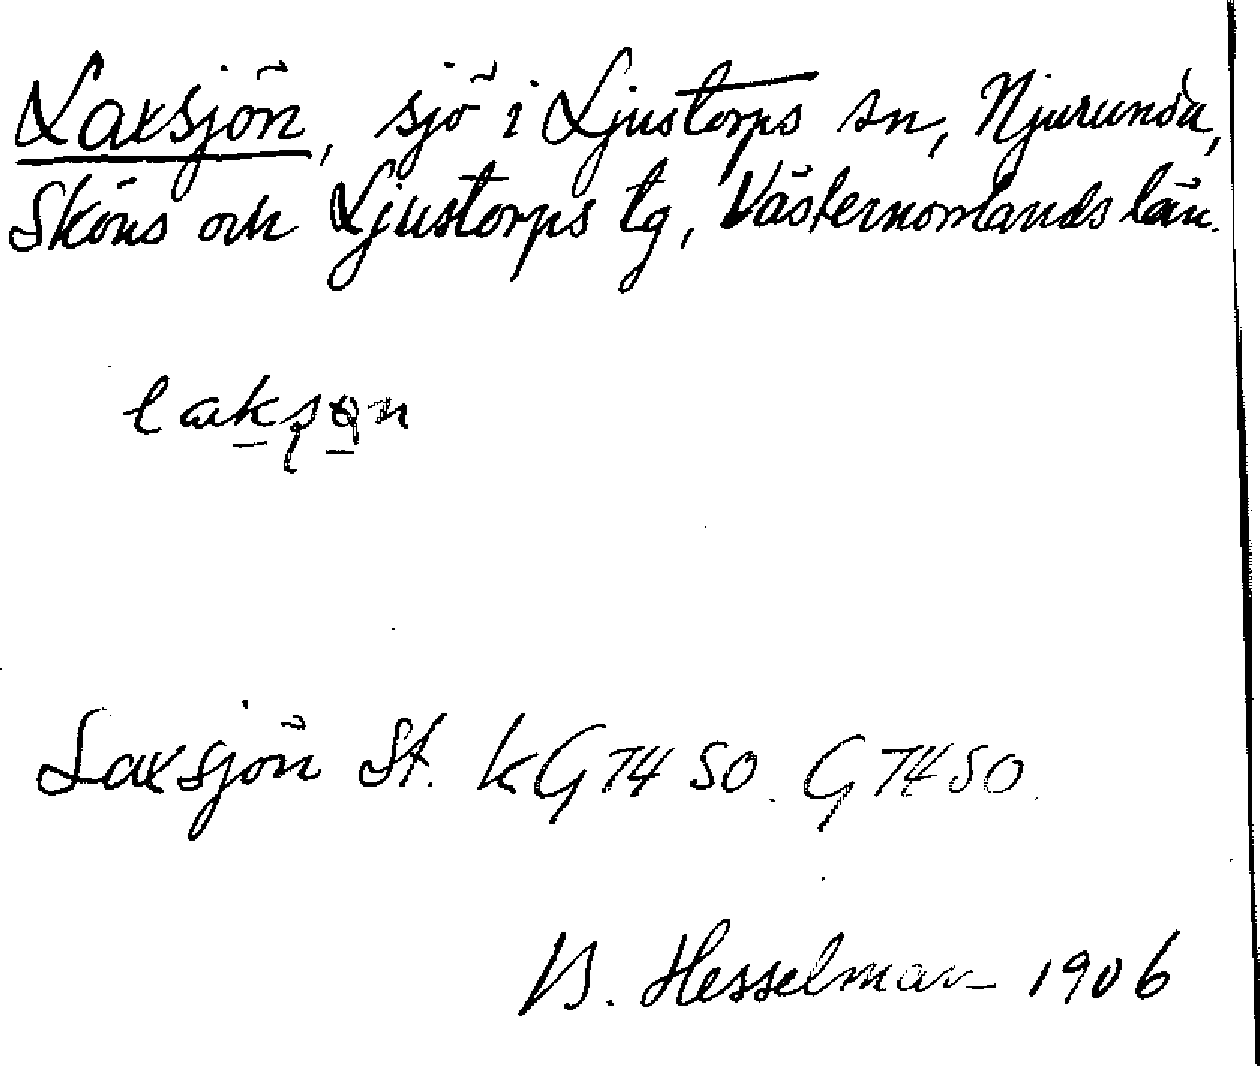 Laxsjön, sjö i Ljustorps sn, Njurunda,
Sköns och Ljustorps tg, Västernorrlands län.
Laxsjön St. kG 74 SO. G 74 SO.
B. Hesselman 1906